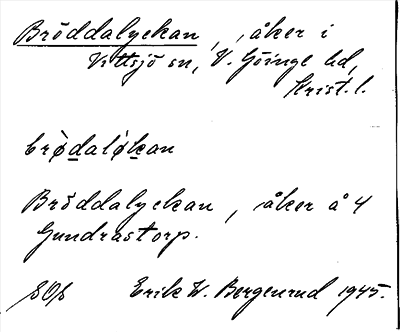 Bröddalyckan, åker i
Vittsjö sn, V. Göinge hd,
Krist. l.
brø̀daløkan
Bröddalyckan, åker å 4
Gundrastorp.
Erik W. Bergenrud 1945.